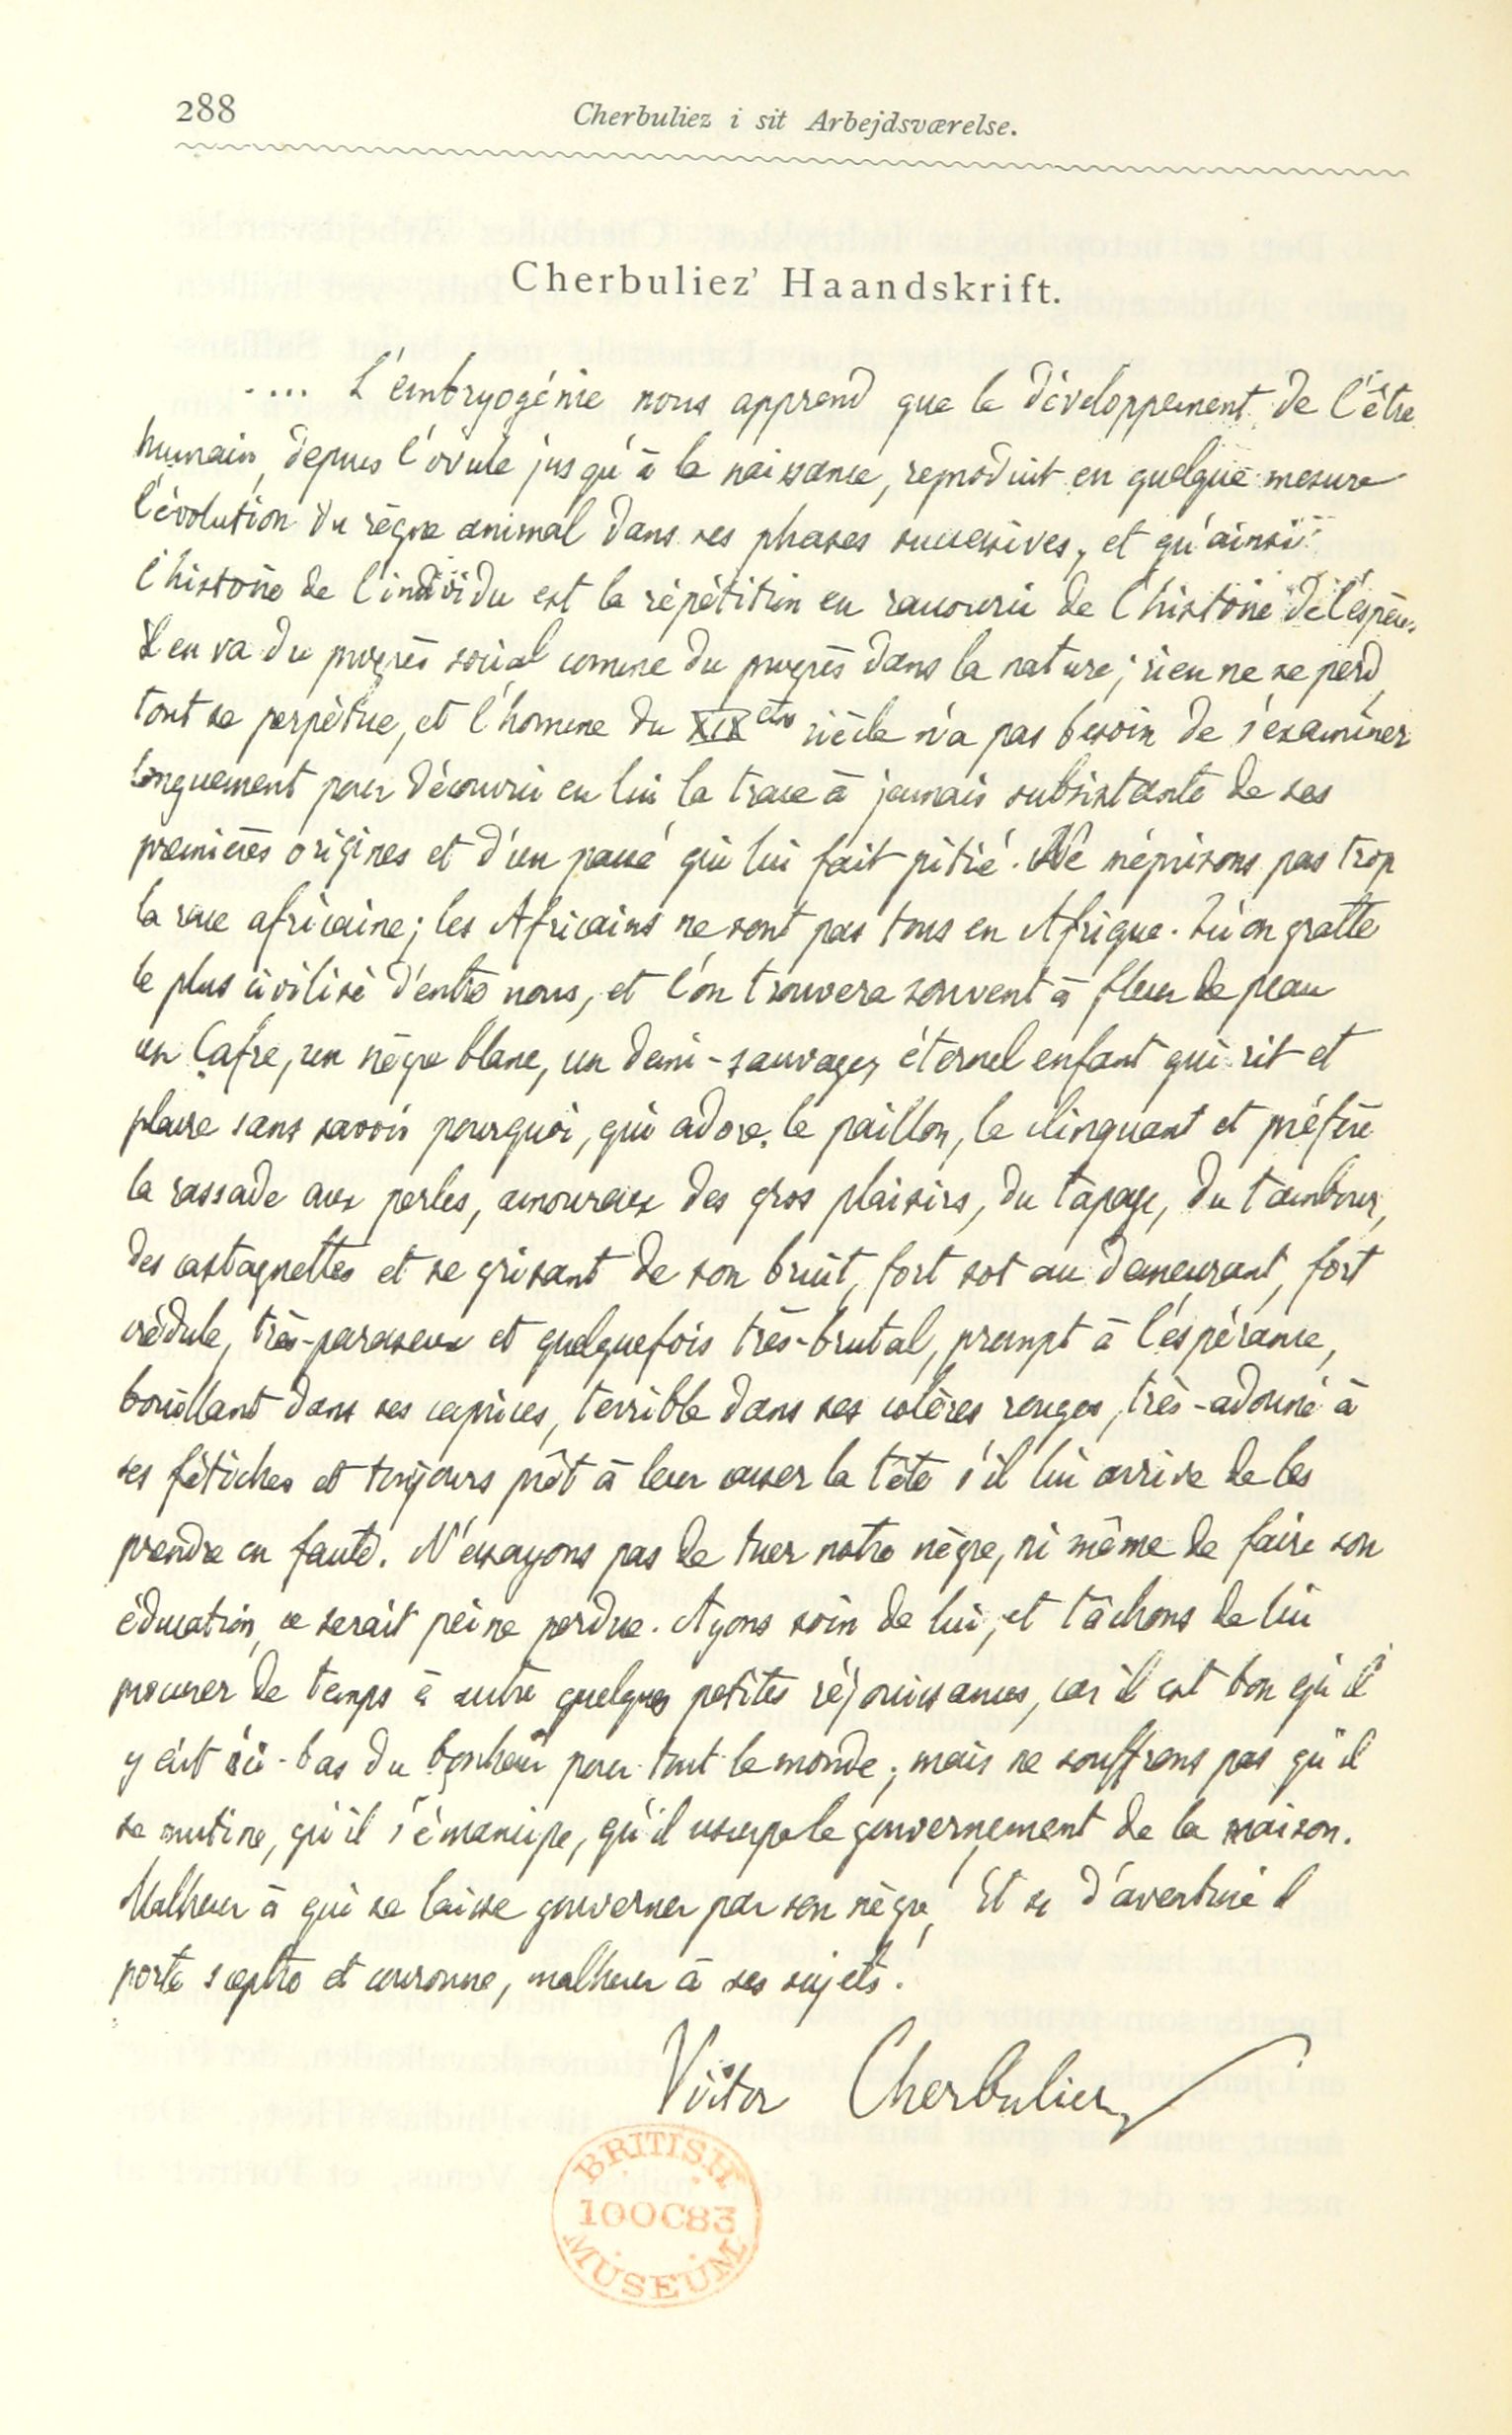 288
Cherbuliez i sit Arbejdsværelse.
Cherbuliez' Haandskrift.
.... L'embryogénie nous apprend que le développement de l'être
humain, depuis l'ovule jusqu'à la naissance, reproduit en quelque mesure
l'évolution du règne animal dans ses phases successives, et qu'ainsi
l'histoire de l'individu est la répétition en raccourci de l'histoire de l'espèce.
Il en va du progrès social comme du progrès dans la nature; rien ne se perd,
tout se perpétue, et l'homme du XIXème siècle n'a pas besoin de s'examiner
longuement pour découvrir en lui la trace à jamais subsistante de ses
premières origines et d'un passé qui lui fait pitié. Ne méprisons pas trop
la race africaine; les Africains ne sont pas tous en Afrique. Qu'on gratte
le plus civilisé d'entre nous, et l'on trouvera souvent à fleur de peau
un Cafre, un nègre blanc, un demi-sauvage, éternel enfant qui rit et
pleure sans savoir pourquoi, qui adore le paillon, le clinquant et préfère
la rassade aux perles, amoureux des gros plaisirs, du tapage, du tambour,
des castagnettes et se grisant de son bruit, fort sot au demeurant, fort
crédule, très-paresseux et quelquefois très-brutal, prompt à l'espérance,
bouillant dans ses caprices, terrible dans ses colères rouges, très-adonné à
ses fétiches et toujours prêt à leur casser la tête s'il lui arrive de les
prendre en faute. N'essayons pas de tuer notre nègre, ni même de faire son
éducation, ce serait peine perdue. Ayons soin de lui, et tâchons de lui
procurer de temps à autre quelques petites réjouissances, car il est bon qu'il
y ait ici-bas du bonheur pour tout le monde; mais ne souffrons pas qu'il
se mutine, qu'il s'émancipe, qu'il usurpe le gouvernement de la maison.
Malheur à qui se laisse gouverner par son nègre! Et si d'aventure il
porte sceptre et couronne, malheur à ses sujets!
Victor Cherbuliez
BRITISH
10OC83
MUSEUM